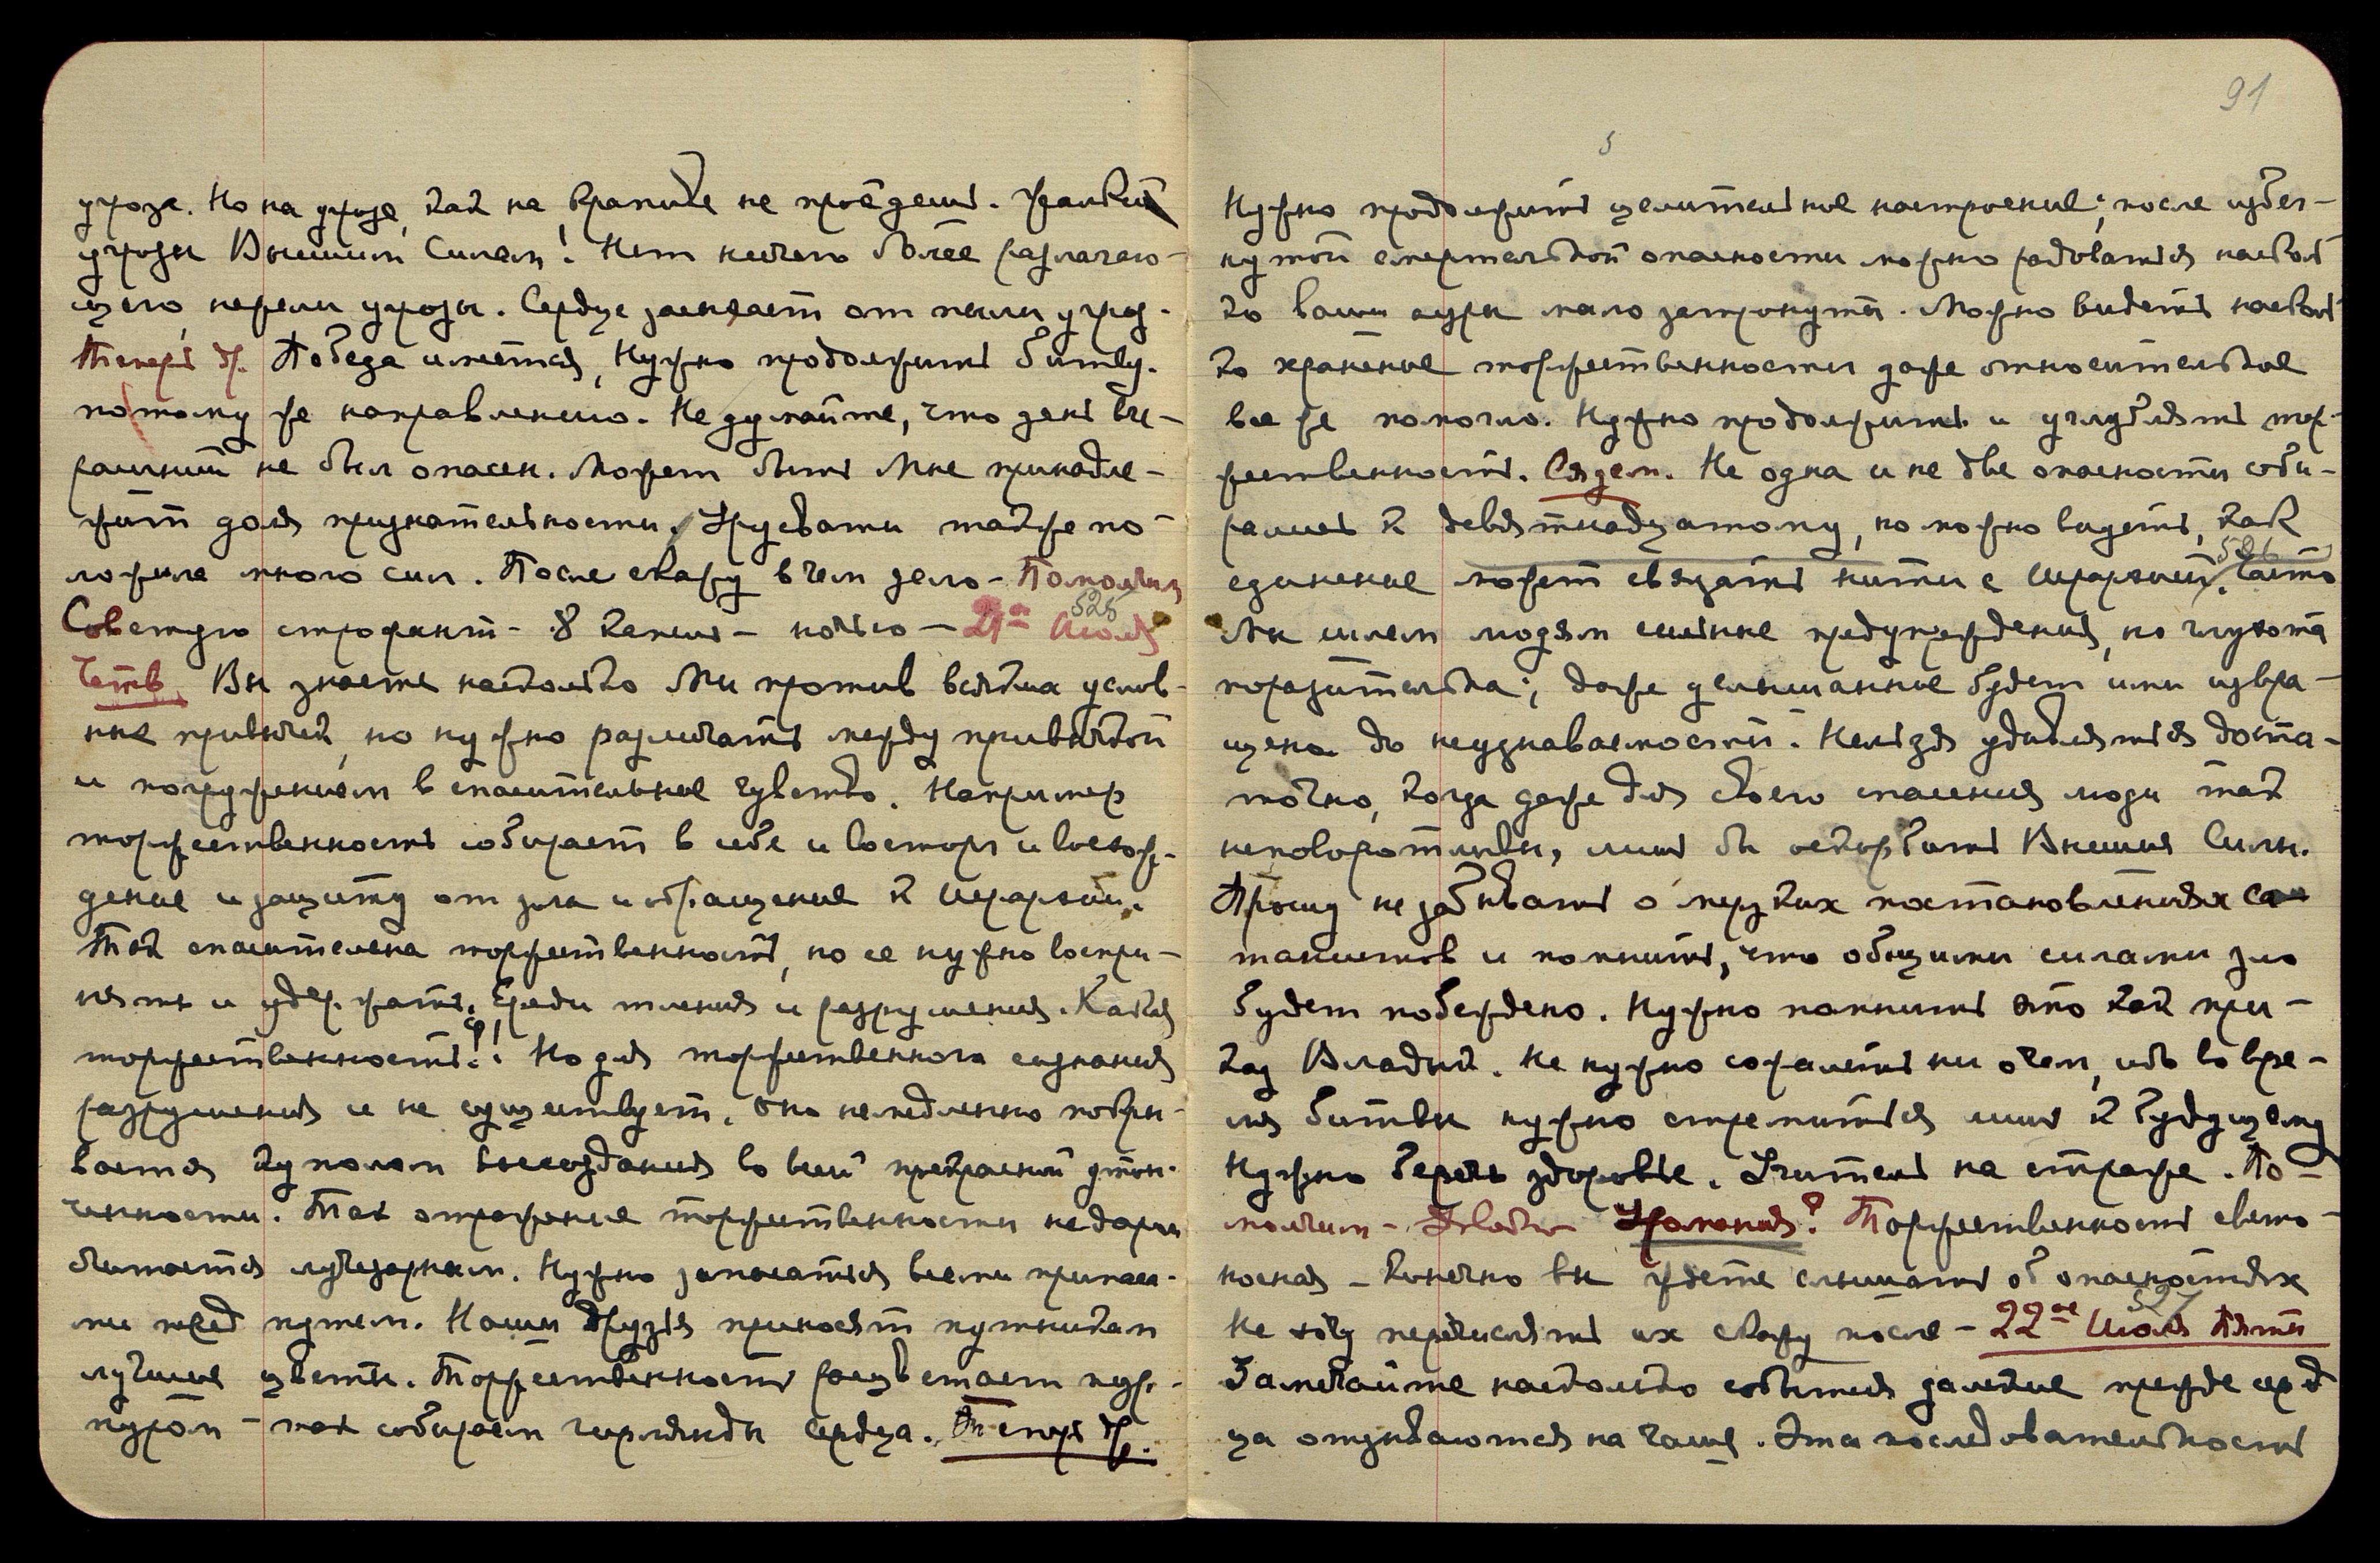 угроза. Но на угрозе, как на крапиве не проедешь. Жалки
угрозы Высшим Силам! Нет ничего более разлагаю-
щего, нежели угрозы. Сердце засыпает от пыли угроз.
Теперь др. Победа имеется, Нужно продолжить битву.
потому же направлению. Не думайте, что день вче-
рашний не был опасен. Может быть Мне принадле-
жит доля признательности, Урусвати также по-
ложила много сил. После скажу в чем дело – Помолчим
Советую строфант – 8 капель – ночью – 21ое Июля 525
Четв. Вы знаете насколько Мы против всяких услов-
ных привычек, но нужно различать между привычкой
и погружением в спасительное чувство. Например
торжественность собирает в себе и восторг и восхож-
дение и защиту от зла и обращение к Иерархии.
Так спасительна торжественность, но ее нужно воспри-
нять и удержать. Среди тления и разрушения. Какая
торжественность?! Но для торжественного сознания
разрушения и не существует. Оно немедленно покры-
вается куполом воссоздания во всей прекрасной утон-
ченности. Так отражение торжественности недаром
считается лучезарным. Нужно запасаться всеми припаса-
ми перед путем. Наши друзья приносят путникам
лучшие цветы. Торжественность расцветает пур-
пуром – так собираем гирлянды сердца. Теперь др.
91
5
Нужно продолжить целительное настроение; после избег-
нутой смертельной опасности можно радоваться насколь
ко ваши ауры мало затронуты. Можно видеть насколь
ко хранение торжественности даже относительное
все же помогло. Нужно продолжить и углублять тор-
жественность. Сядем. Не одна и не две опасности соби-
рались к девятнадцатому, но можно видеть, как
единение может связать нити с Иерархией. 526 Часто
Мы шлем людям сильные предупреждения, но глухота
поразительна; даже услышанное будет ими извра-
щено до неузнаваемости. Нельзя удивляться доста-
точно, когда даже для своего спасения люди так
неповоротливы, лишь бы оскорбить Высшие Силы.
Прошу не забывать о мерзких постановлениях са-
танистов и помнить, что общими силами зло
будет побеждено. Нужно помнить это как при-
каз Владык. Не нужно сожалеть ни о чем, ибо во вре-
мя битвы нужно стремиться лишь к будущему
Нужно беречь здоровье. Учитель на страже. По-
молчим – Торжественность свето-
носная – Конечно вы ждете слышать об опасностях
Не хочу перечислять их скажу после – 22ое Июля Пятн 527
Замечайте насколько события далекие прежде серд
ца отзываются на чаше. Эта последовательность